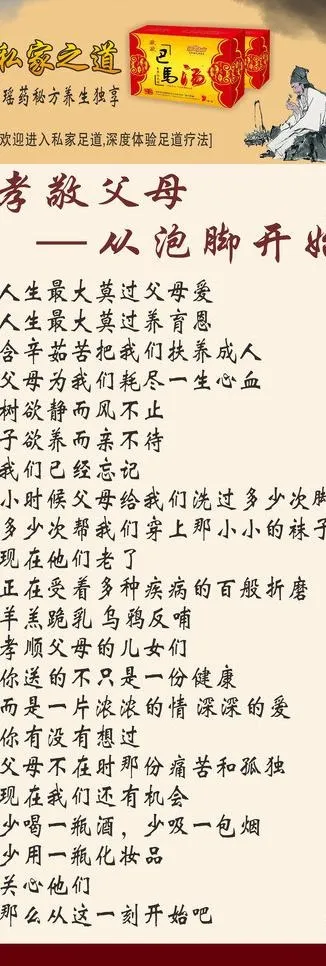 私家之道
瑶药秘方养生独享
巴马汤
欢迎进入私家足道,深度体验足道疗法]
孝敬父母
—从泡脚开始
人生最大莫过父母爱
人生最大莫过养育恩
含辛茹苦把我们扶养成人
父母为我们耗尽一生心血
树欲静而风不止
子欲养而亲不待
我们已经忘记
小时候父母给我们洗过多少次脚
多少次帮我们穿上那小小的袜子
现在他们老了
正在受着多种疾病的百般折磨
羊羔跪乳 乌鸦反哺
孝顺父母的儿女们
你送的不只是一份健康
而是一片浓浓的情 深深的爱
你有没有想过
父母不在时那份痛苦和孤独
现在我们还有机会
少喝一瓶酒，少吸一包烟
少用一瓶化妆品
关心他们
那么从这一刻开始吧